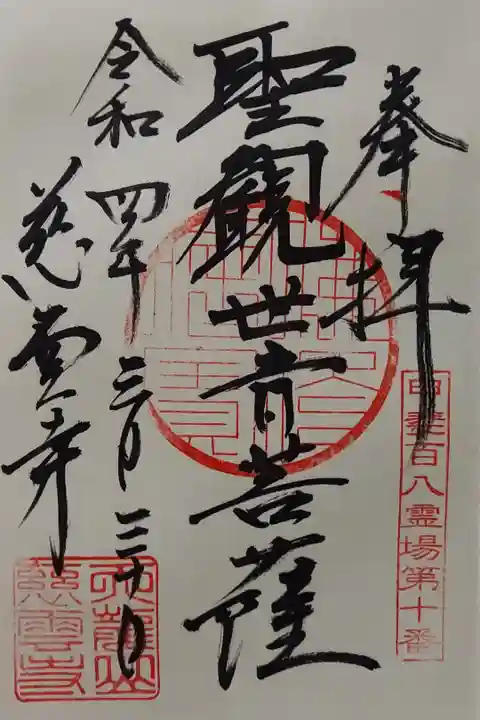 奉拝
甲斐百八霊場第十番
聖観世音菩薩
令和四年三月三十日
慈雲寺
天龍山
慈雲寺